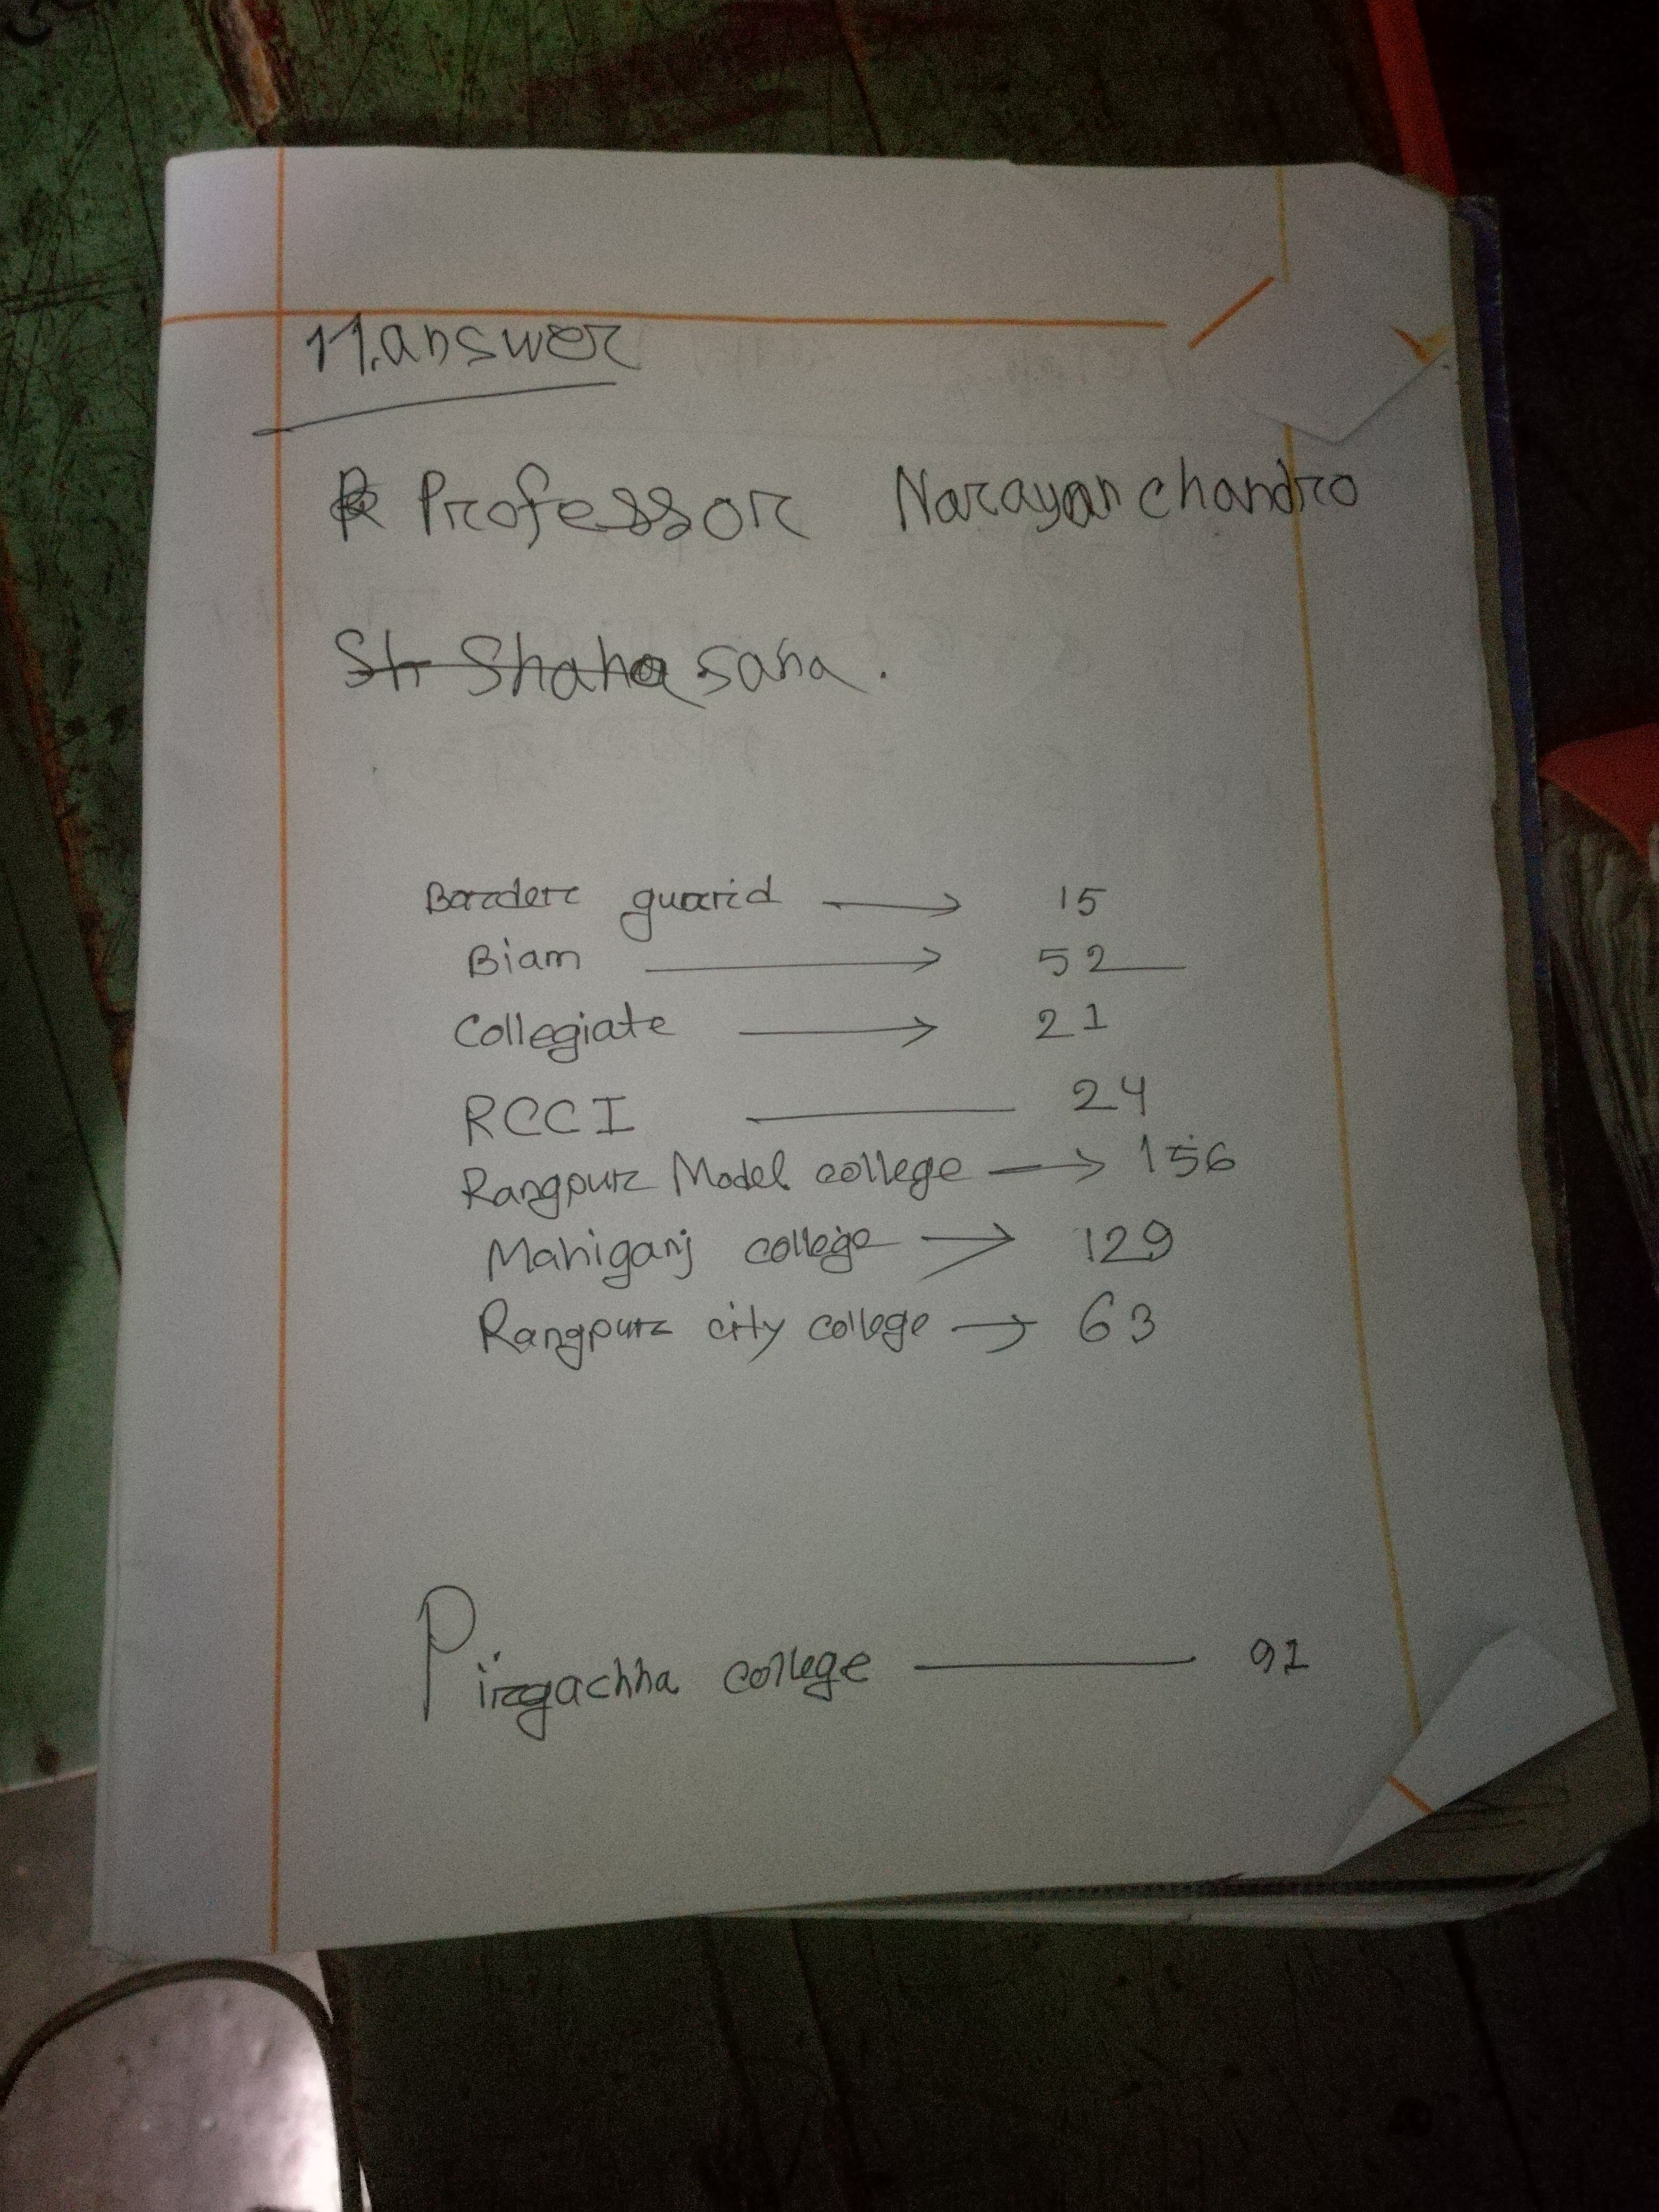 11. answer
Professor Narayan chandro
Sh Shaha saha.
Border guard → 15
Biam → 52
Collegiate → 21
RCCI — 24
Rangpur Model college → 156
Mahiganj college → 129
Rangpur city college → 63
Pirgachha college — 91